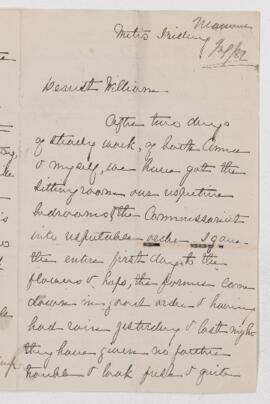 Metis Friday
Dearest William
After two days
of steady work, of both Annie
& myself, we have got the
sitting room our respective
bedrooms & the Commissariat
into respectable order. I gave
the entire first day to the
flowers & the
down in good order & having
had rain yesterday & last night
they have given no further
trouble & look fresh & quite